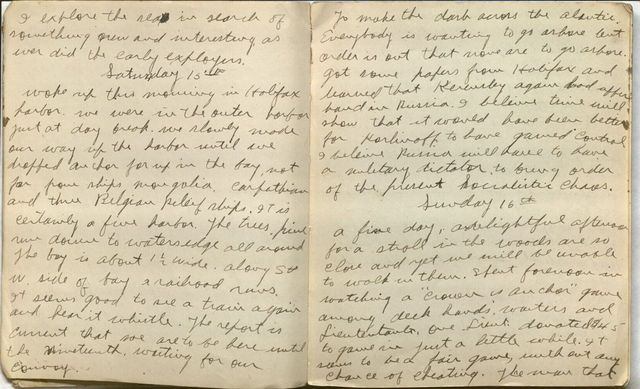 I explore the sea in search of
something new and interesting as
ever did the early explorers.
Saturday 15th
woke up this morning in Halifax
harbor. we were in the outer harbor
just at day break. we slowly made
our way up the harbor until we
dropped anchor far up in the bay, not
far from ships, mongolia, Carpathian
and three Belgian Relief ships. It is
certainly a fine harbor. The trees, pine
run downe to waters edge all around
The bay is about 1½ wide. along S &
W. side of bay a railroad runs.
It seems good to see a train again
and hear it whistle. The report is
current that we are to be here until
the nineteenth, waiting for our
convoy.
To make the dash across the atlantic.
Everybody is wanting to go ashore but
order is out that none are to go ashore.
got some papers from Halifax and
learned that Kerensky again had upper
hand in Russia. I believe time will
show that it would have been better
for Korlinoff to have gained control
I beleive Russia will have to have
a military dictator to bring order
of the present socialistic chaos.
Sunday 16th
a fine day, a delightful afternoon
for a stroll in the woods are so
close and yet we will be unable
to walk in them. Spent forenoon in
watching a "crown & anchor" game
among deck hands, waiters and
Lieutentants, one Lieut. donated
to game in just a little while. It
seems to be a fair game, without any
chance of cheating. The man that